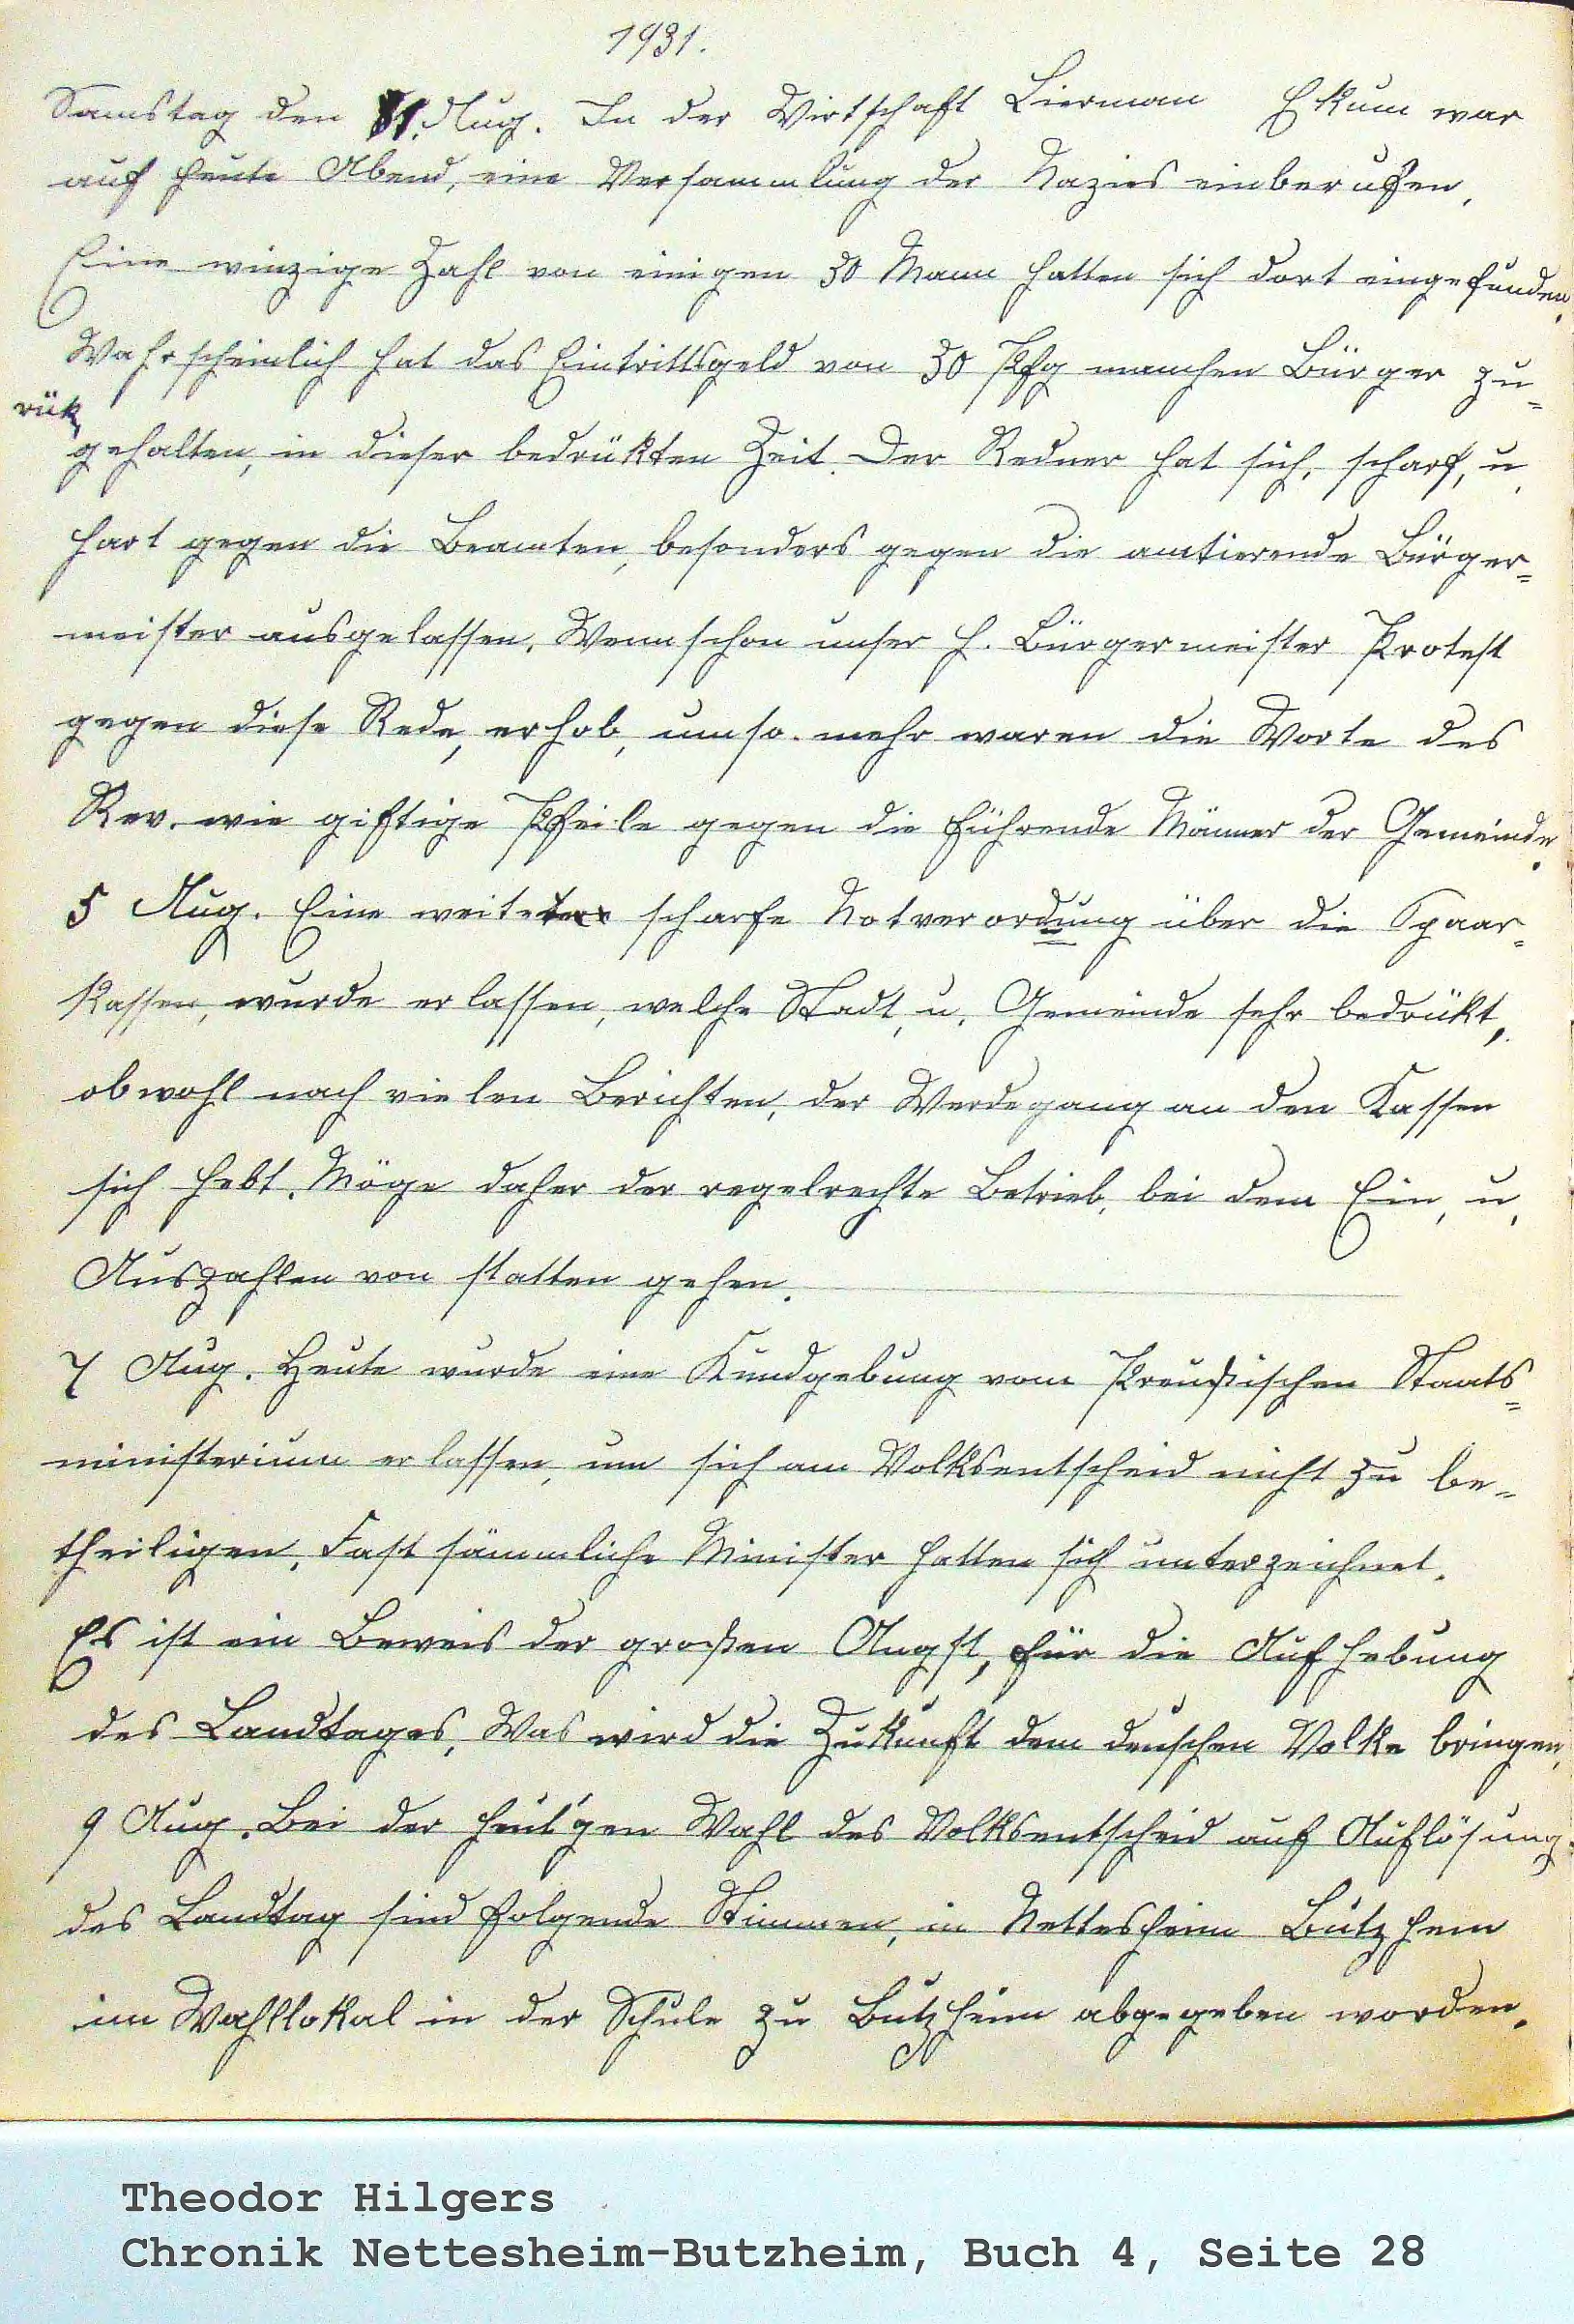 1931.
Samstag den 1. Aug. In der Wirtschaft Lierman Ekum war
auf heute Abend, eine Versammlung der Nazies einberufen,
Eine winzige Zahl von einigen 30 Mann hatten sich dort eingefunden.
Wahrscheinlich hat das Eintrittsgeld von 30 Pfg manchen Bürger zu=
rük
gehalten, in dieser bedrükten Zeit. Der Redner hat sich, scharf, u,
hart gegen die Beamten, besonders gegen die amtierende Bürger=
meister ausgelassen, Wennschon unser H. Bürgermeister Protest
gegen diese Rede, erhob, umso mehr waren die Worte des
wie giftige Pfeile gegen die führende Männer der Gemeinde.
5 Aug. Eine scharfe Notverordung über die Spaar=
kassen, wurde erlassen, welche Stadt, u, Gemeinde sehr bedrükt,
obwohl nach vielen Berichten, der Werdegang an den Kassen
sich hebt. Möge daher der regelrechte Betrieb, bei dem Ein, u,
Auszahlen von statten gehen.
7 Aug. Heute wurde eine Kundgebung vom Preußischen Staats=
ministerium erlassen, um sich am Volksentscheid nicht zu be=
theiligen, Fast sämmliche Minister hatten sich unterzeichnet.
Es ist ein Beweis der großen Angst, für die Aufhebung
des Landtages, Was wird die Zukunft dem deuschen Volke bringen,
9 Aug. Bei der heut'gen Wahl des Volksentscheid auf Auflösung
des Landtag sind folgende Stimmen, in Nettesheim Butzhem
im Wahllokal in der Schule zu Butzheim abgegeben worden.
Theodor Hilgers
Chronik Nettesheim-Butzheim, Buch 4, Seite 28